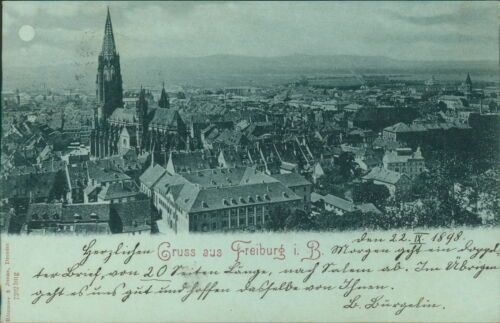 Gruss aus Freiburg i. B.
den 22. IX 1898.
Herzlichen
Morgen geht ein doppel-
ter Brief, von 20 Seiten Länge, nach Salem ab. Im Übrigen
geht es uns gut und hoffen dasselbe von Ihnen.
B. Bürgelin.
& Jordan, Dresden